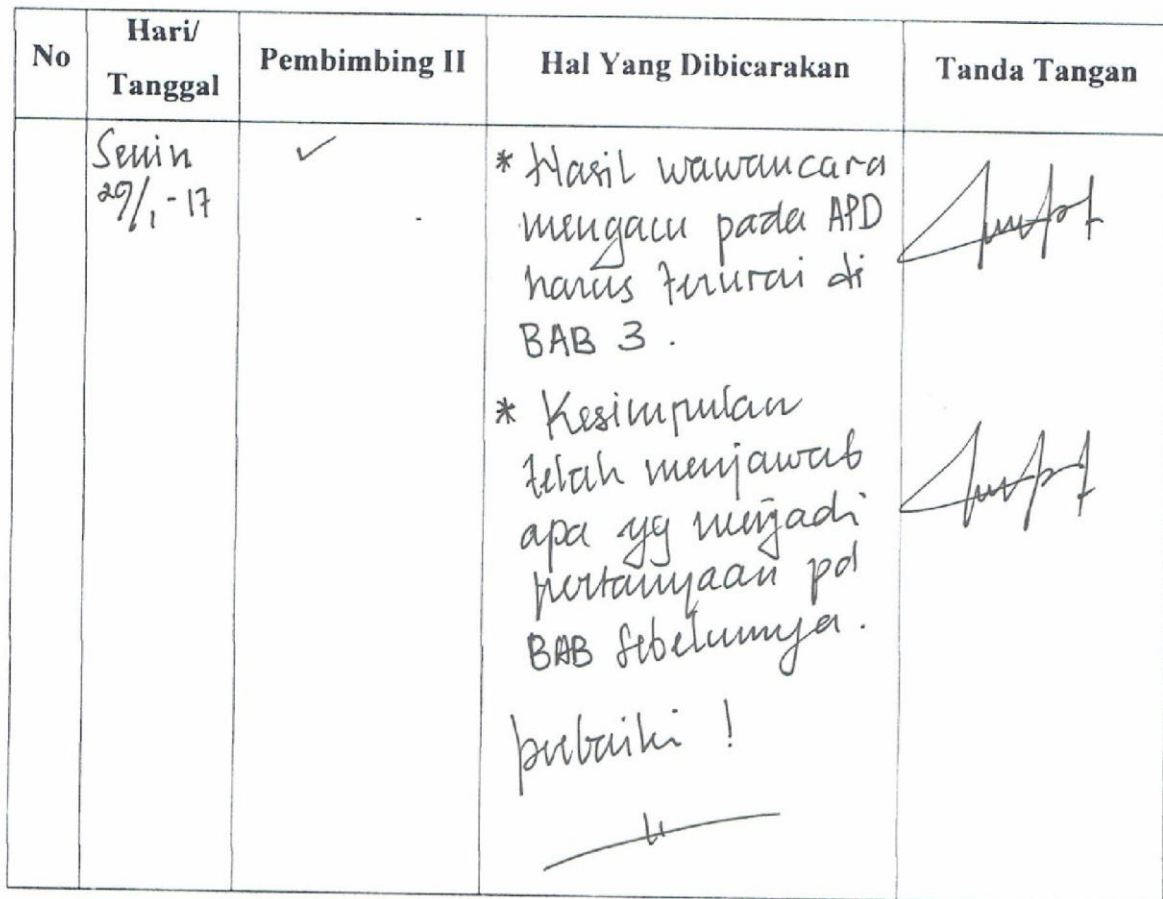 No Hari/ Tanggal Pembimbing II Hal Yang Dibicarakan Tanda Tangan
Senin
29/1-17
✓
* Hasil wawancara
mengacu pada APD
harus terurai di
BAB 3.
* Kesimpulan
telah menjawab
apa yg menjadi
pertanyaan pd
BAB sebelumnya.
perbaiki !